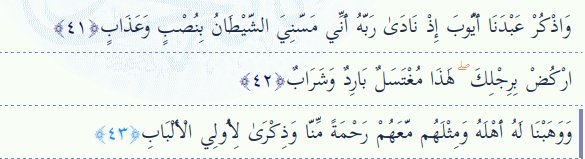 وَاذْكُرْ عَبْدَنَا أَيُّوبَ إِذْ نَادَىٰ رَبَّهُ أَنِّي مَسَّنِيَ الشَّيْطَانُ بِنُصْبٍ وَعَذَابٍ ﴿٤١﴾
ارْكُضْ بِرِجْلِكَ ۖ هَٰذَا مُغْتَسَلٌ بَارِدٌ وَشَرَابٌ ﴿٤٢﴾
وَوَهَبْنَا لَهُ أَهْلَهُ وَمِثْلَهُم مَّعَهُمْ رَحْمَةً مِّنَّا وَذِكْرَىٰ لِأُولِي الْأَلْبَابِ ﴿٤٣﴾